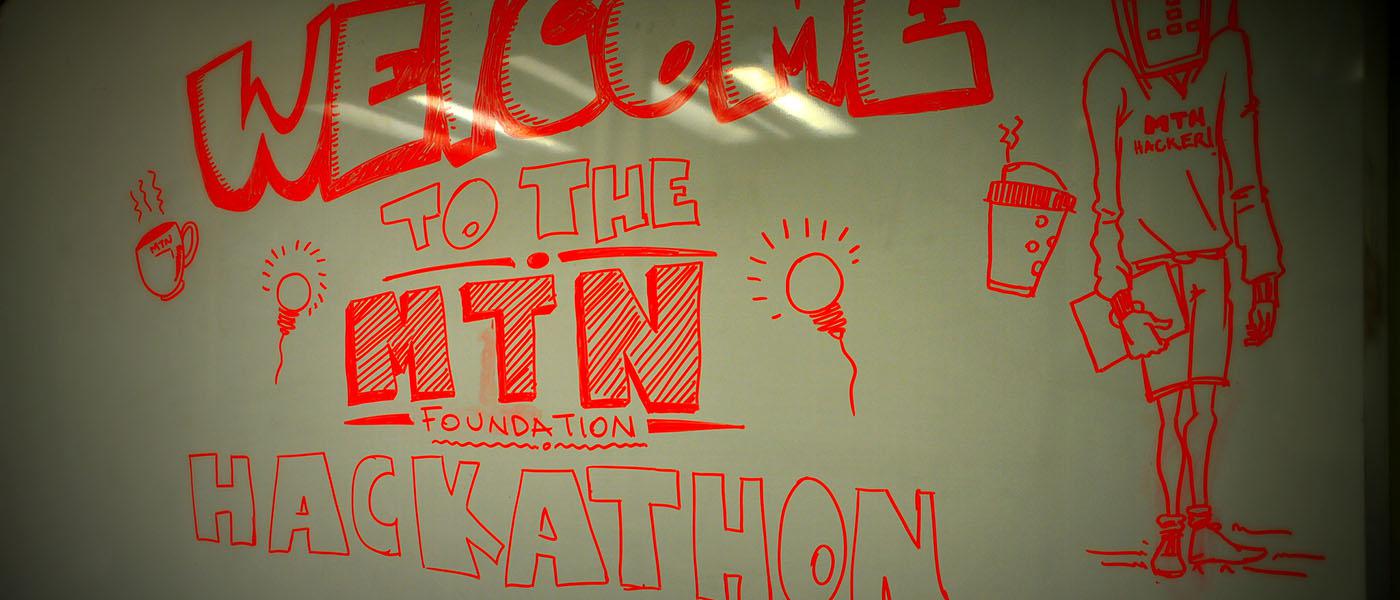 WELCOME
TO THE
MTN
FOUNDATION
HACKATHON
MTN
MTN
HACKER!